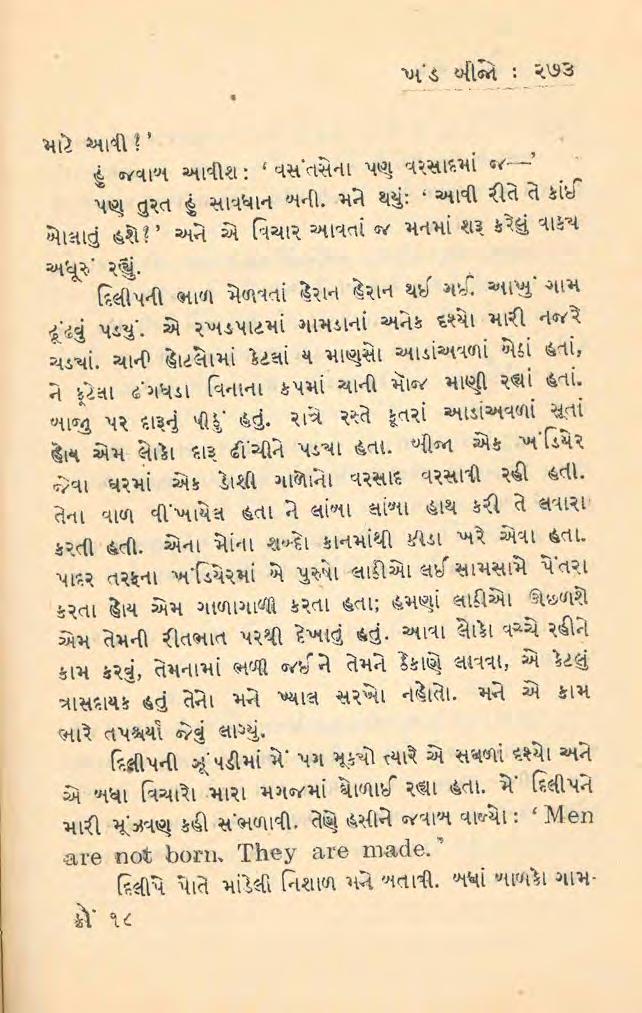 ખંડ બીજો : ૨૭૩
માટે આવી ?'
હું જવાબ આવીશ: ‘ વસંતસેના પણ વરસાદમાં જ—'
પણ તુરત હું સાવધાન બની. મને થયું: ‘ આવી રીતે તે કાંઈ
બોલાતું હશે?' અને એ વિચાર આવતાં જ મનમાં શરૂ કરેલું વાક્ય
અધૂરું રહ્યું.
દિલીપની ભાળ મેળવતાં હેરાન હેરાન થઈ ગઈ. આખું ગામ
ઢૂંઢવું પડયું. એ રખડપાટમાં ગામડાનાં અનેક દશ્યો મારી નજરે
ચડયાં. ચાની હોટલોમાં કેટલાં ય માણસો આડાંઅવળાં બેઠાં હતાં,
ને ફૂટેલા ઢંગધડા વિનાના કપમાં ચાની મૉજ માણી રહ્યાં હતાં.
બાજુ પર દારૂનું પીઠું હતું. રાત્રે રસ્તે કૂતરાં આડાંઅવળાં સૂતાં
હોય એમ લોકો દારૂ ઢીંચીને પડયા હતા. બીજા એક ખંડિયેર
જેવા ઘરમાં એક ડોશી ગાળોનો વરસાદ વરસાવી રહી હતી.
તેના વાળ વીંખાયેલ હતા ને લાંબા લાંબા હાથ કરી તે લવારા
કરતી હતી. એના મોંના શબ્દો કાનમાંથી કીડા ખરે એવા હતા.
પાદર તરફના ખંડિયેરમાં બે પુરુષો લાઠીઓ લઈ સામસામે પેંતરા
કરતા હોય એમ ગાળાગાળી કરતા હતા; હમણાં લાઠીઓ ઊછળશે
એમ તેમની રીતભાત પરથી દેખાતું હતું. આવા લોકો વચ્ચે રહીને
કામ કરવું, તેમનામાં ભળી જઈને તેમને ઠેકાણે લાવવા, એ કેટલું
ત્રાસદાયક હતું તેનો મને ખ્યાલ સરખો નહોતો. મને એ કામ
ભારે તપશ્ચર્યા જેવું લાગ્યું.
દિલીપની ઝૂંપડીમાં મેં પગ મૂકયો ત્યારે એ સઘળાં દશ્યો અને
એ બધા વિચારો મારા મગજમાં ઘોળાઈ રહ્યા હતા. મેં દિલીપને
મારી મૂંઝવણ કહી સંભળાવી. તેણે હસીને જવાબ વાળ્યો: ‘ Men
are not born. They are made.”
દિલીપે પોતે માંડેલી નિશાળ મને બતાવી. બધાં બાળકો ગામ-
ક્રોં ૧૮